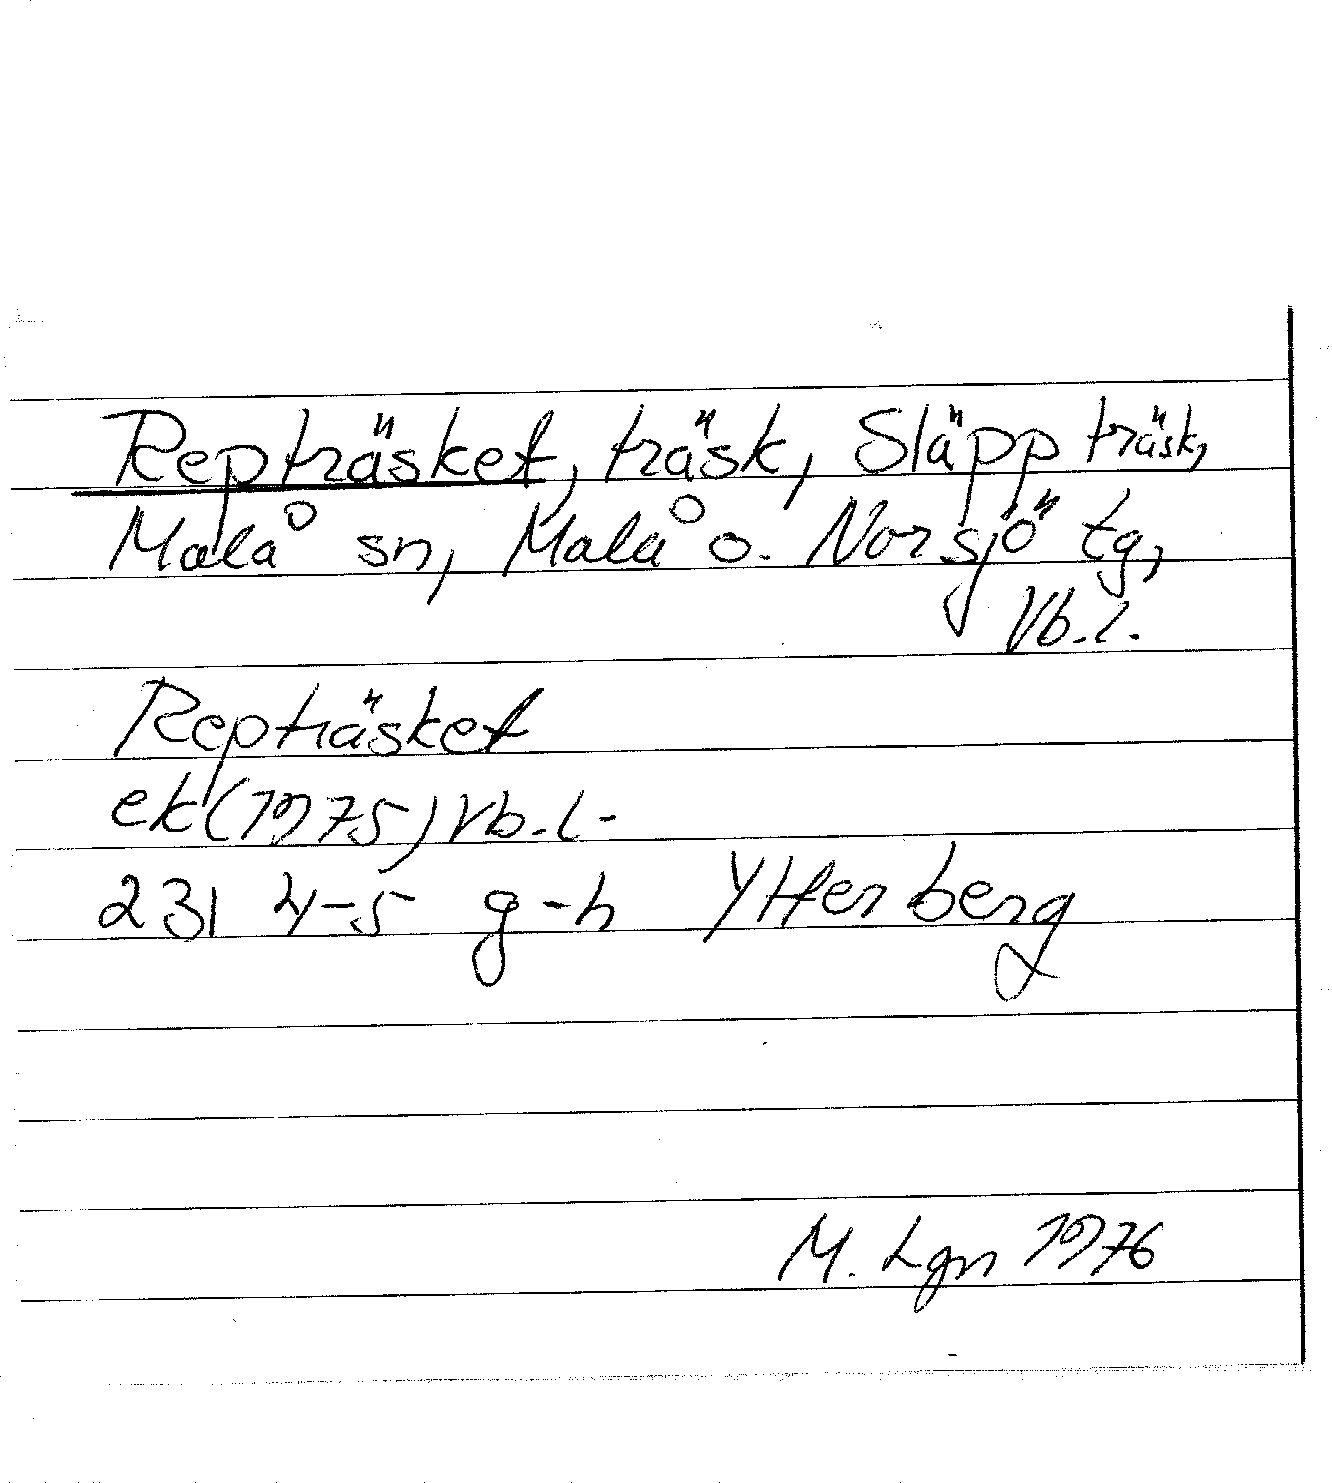 Repträsket, träsk, Släppträsk,
Malå sn, Malå o. Norsjö tg,
Vb.l.
Repträsket
ek(1975)Vb.l.
231 4-5 g-h Yttenberg
M. Lgn 1976